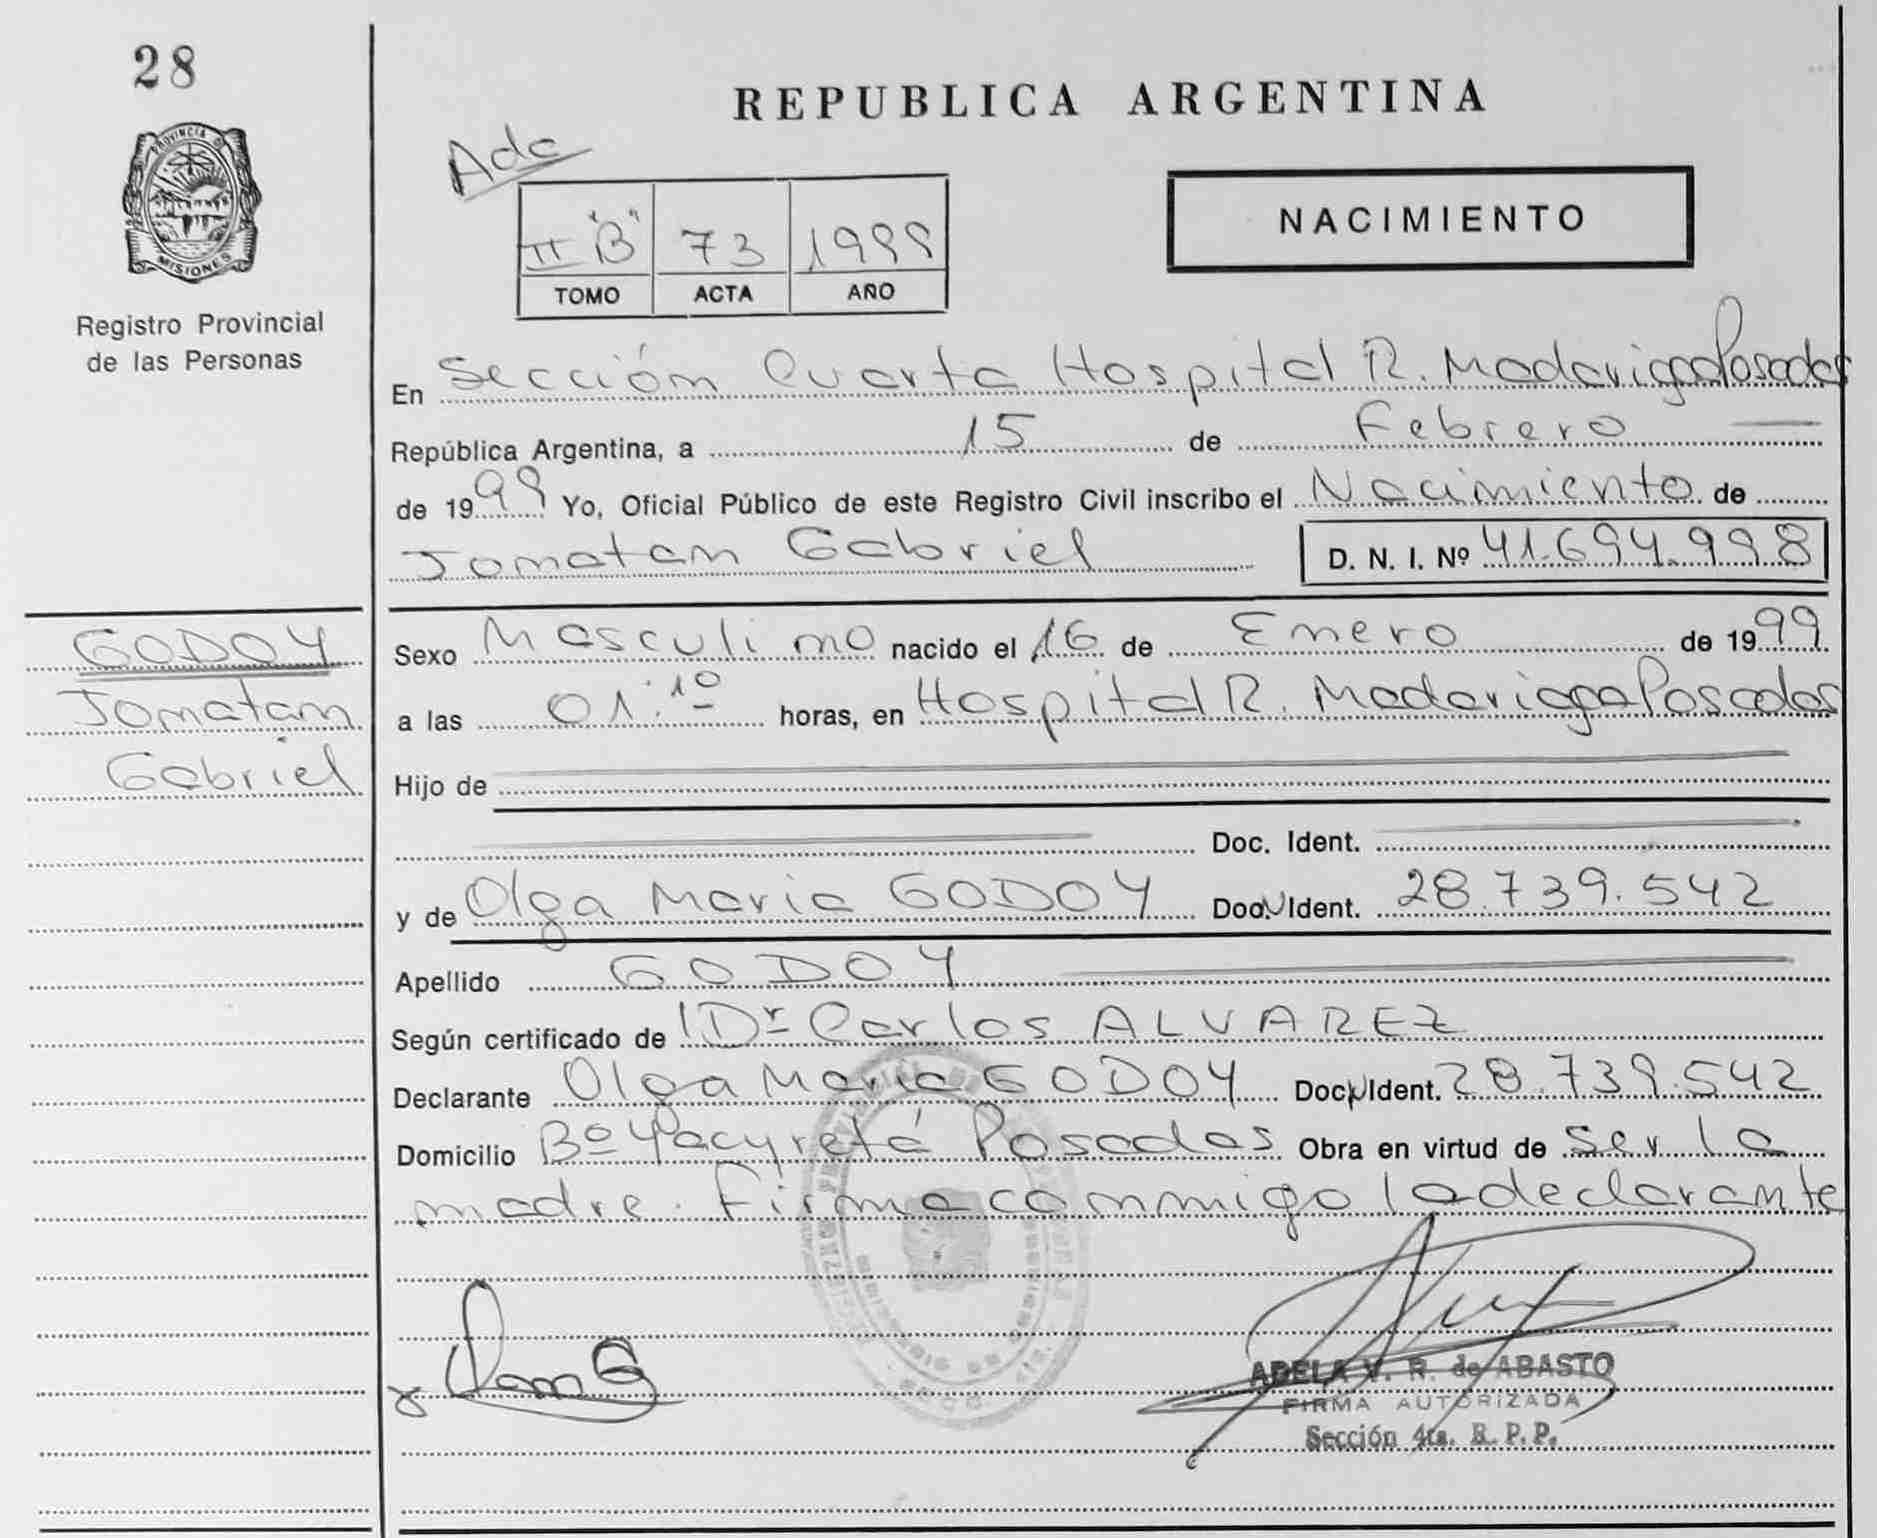 28
REPUBLICA ARGENTINA
Adc
II "B" 73 1999
TOMO ACTA AÑO
NACIMIENTO
PROVINCIA D
MISIONES
Registro Provincial
de las Personas
En Sección Cuarta Hospital R. Madariaga Posadas
República Argentina, a 15 de Febrero
de 1999 Yo, Oficial Público de este Registro Civil inscribo el Nacimiento de
Jonatan Gabriel D. N. I. Nº 41.694.998
GODOY
Jonatan
Gabriel
Sexo Masculino nacido el 16 de Enero de 1999
a las 01:10 horas, en Hospital R. Madariaga Posadas
Hijo de
Doc. Ident.
y de Olga Maria GODOY Doc. Ident. 28.739.542
Apellido GODOY
Según certificado de Dr Carlos ALVAREZ
Declarante Olga Maria GODOY Doc. Ident. 28.739.542
Domicilio Bº Yacyretá Posadas Obra en virtud de ser la
madre. Firma conmigo la declarante
ADELA V. R. de ABASTO
FIRMA AUTORIZADA
Sección 4ta. R. P. P.